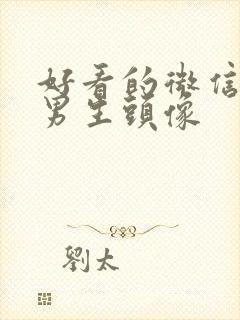 好看的微信
男生頭像
劉太